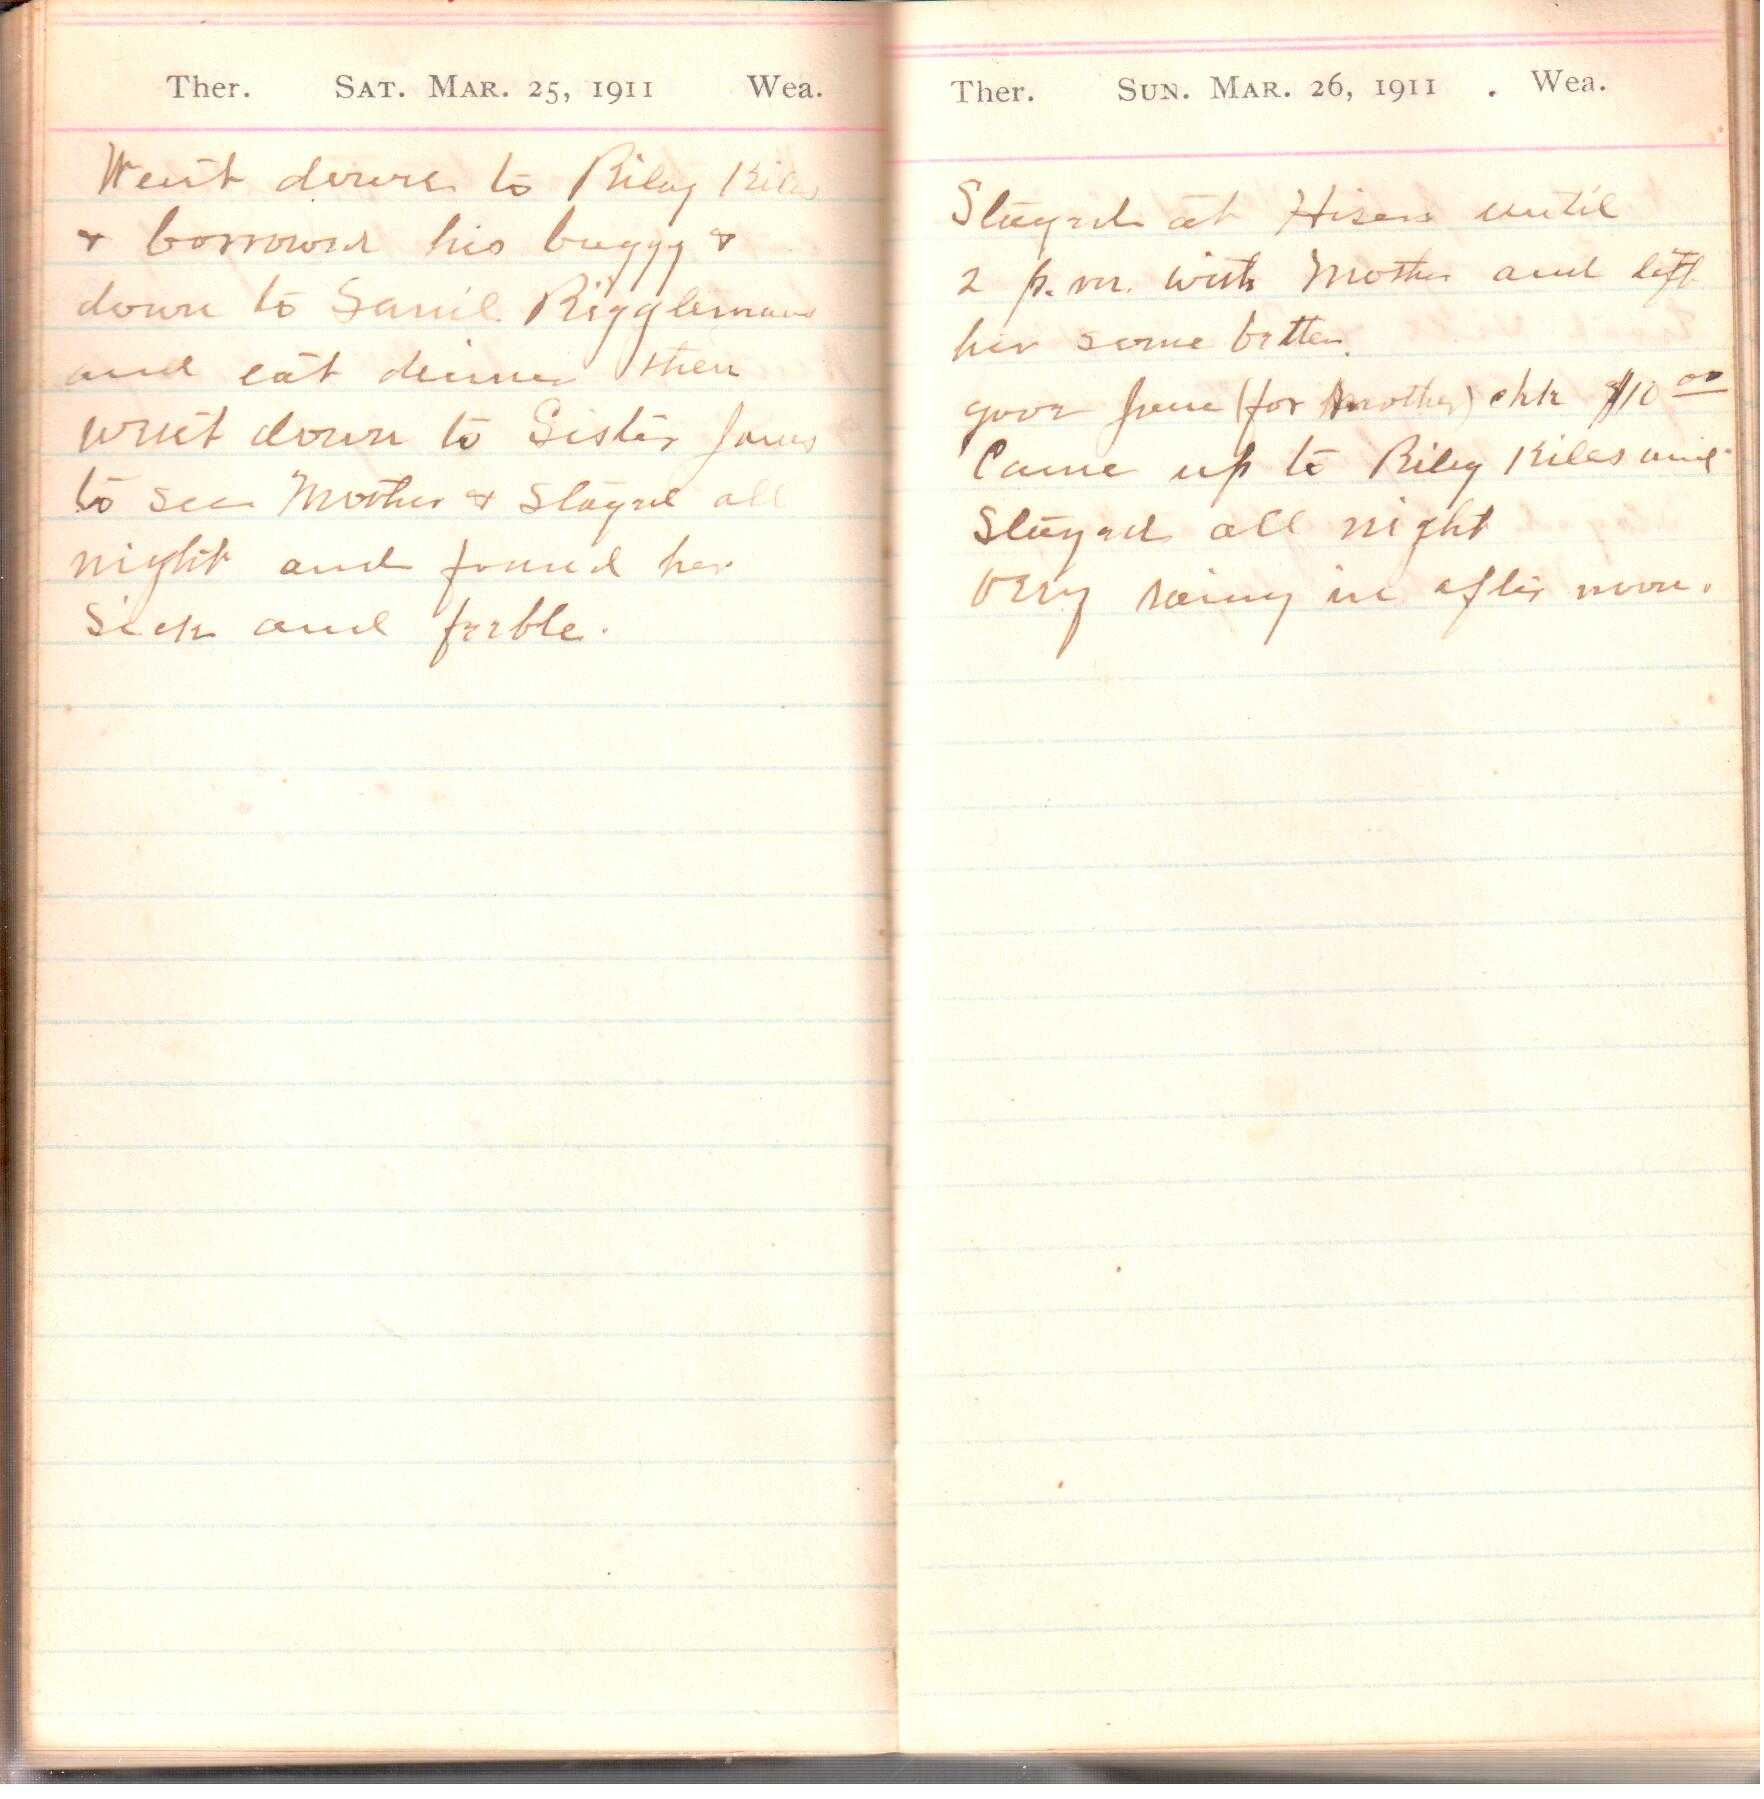 Ther. SAT. MAR. 25, 1911 Wea.
Went down to Riley Kiles
& borrowed his buggy &
down to Saml. Rigglemans
and eat dinner then
went down to Sister Janes
to see Mother & Stayed all
night and found her
Sick and feeble.
Ther. SUN. MAR. 26, 1911 . Wea.
Stayed at Hisers until
2 p.m. with Mother and left
her some better.
gave Jane (for Mother) chk $10 00
Came up to Riley Kiles and
Stayed all night
Very rainy in after noon.